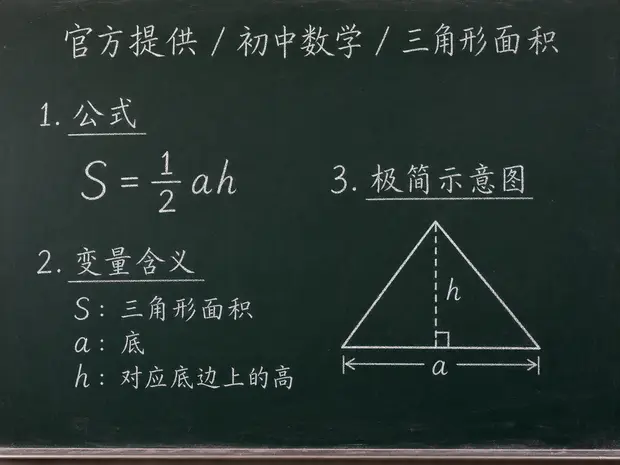 官方提供 / 初中数学 / 三角形面积
1. 公式
S = 1/2 ah
2. 变量含义
S: 三角形面积
a: 底
h: 对应底边上的高
3. 极简示意图
h
a